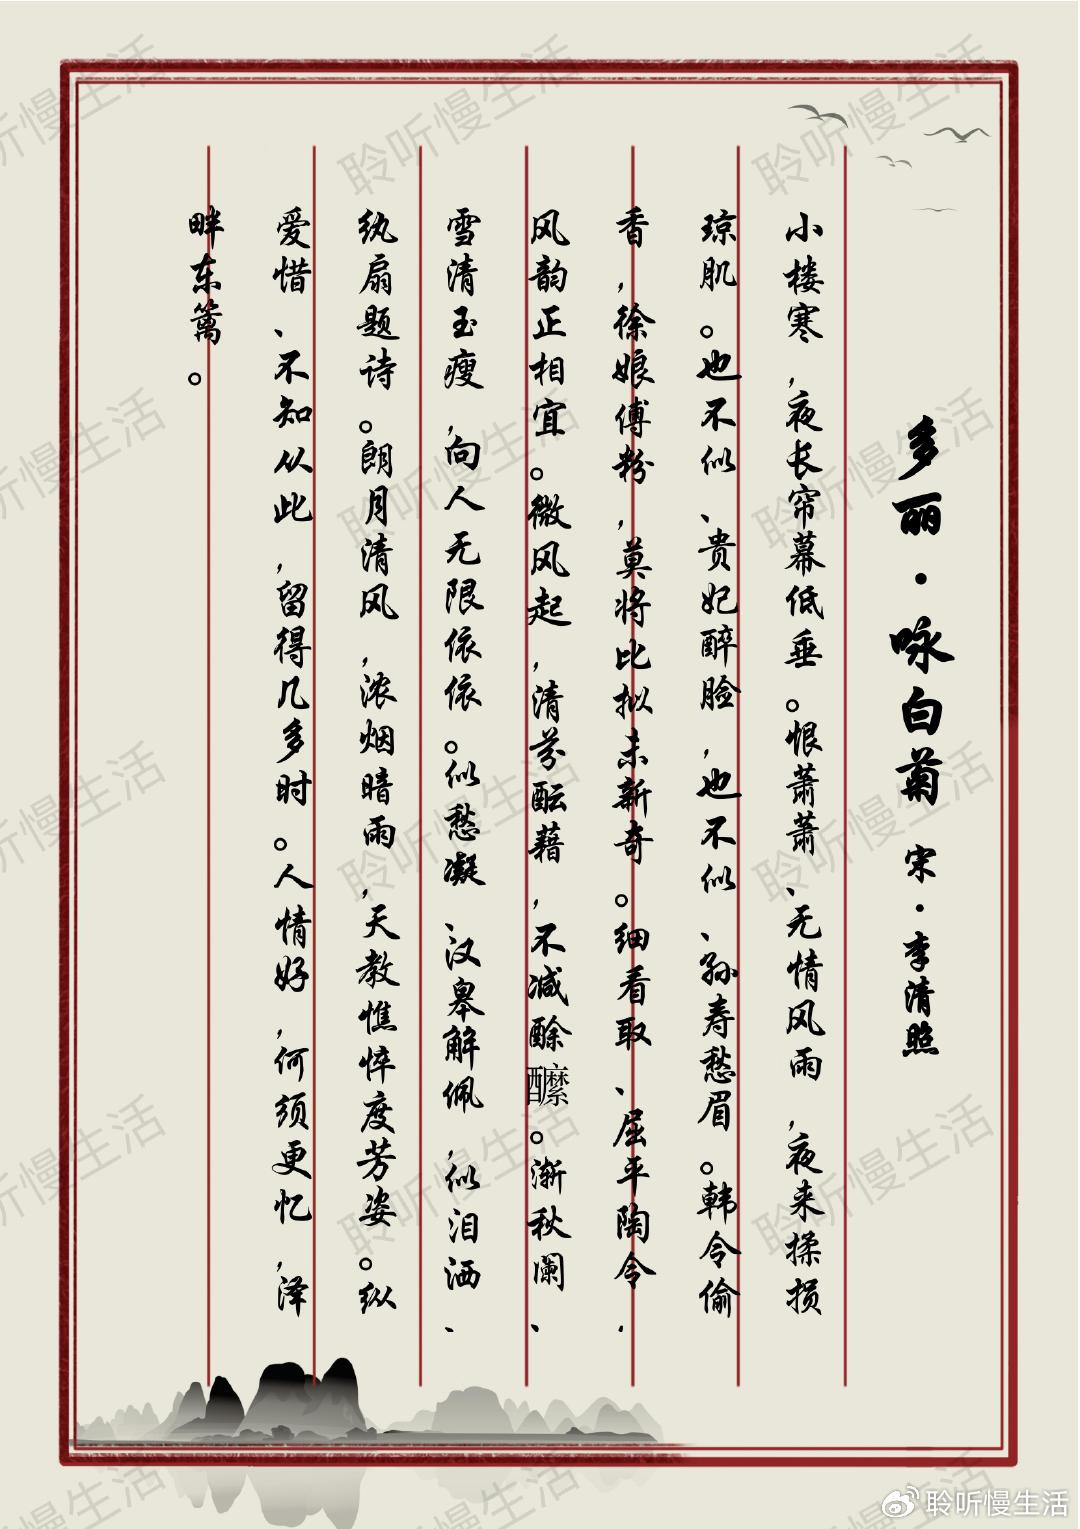 多丽·咏白菊 宋·李清照
小楼寒，夜长帘幕低垂。恨萧萧、无情风雨，夜来揉损
琼肌。也不似、贵妃醉脸，也不似、孙寿愁眉。韩令偷
香，徐娘傅粉，莫将比拟未新奇。细看取、屈平陶令，
风韵正相宜。微风起，清芬酝藉，不减酴醾。渐秋阑、
雪清玉瘦，向人无限依依。似愁凝、汉皋解佩，似泪洒、
纨扇题诗。朗月清风，浓烟暗雨，天教憔悴度芳姿。纵
爱惜、不知从此，留得几多时。人情好，何须更忆，泽
畔东篱。
聆听慢生活